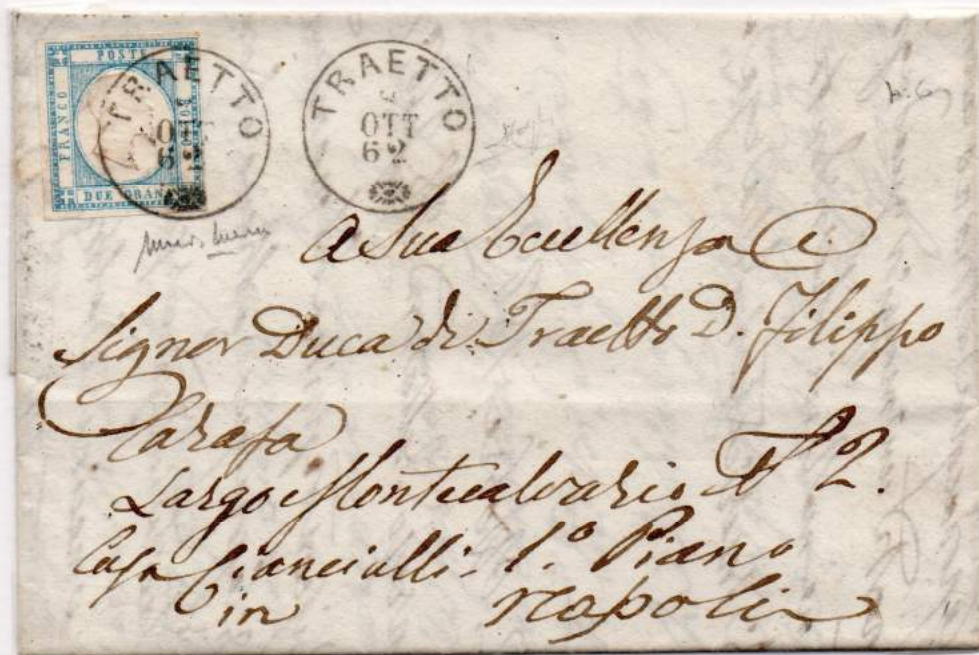 POSTE
FRANCO
BOLLO
DUE GRANA
TRAETTO
OTT
62
TRAETTO
OTT
62
A Sua Eccellenza
Signor Duca di Traetto D. Filippo
Carafa
Largo Montecalvario N 2.
Casa Ciancialli - 1.º Piano
in Napoli